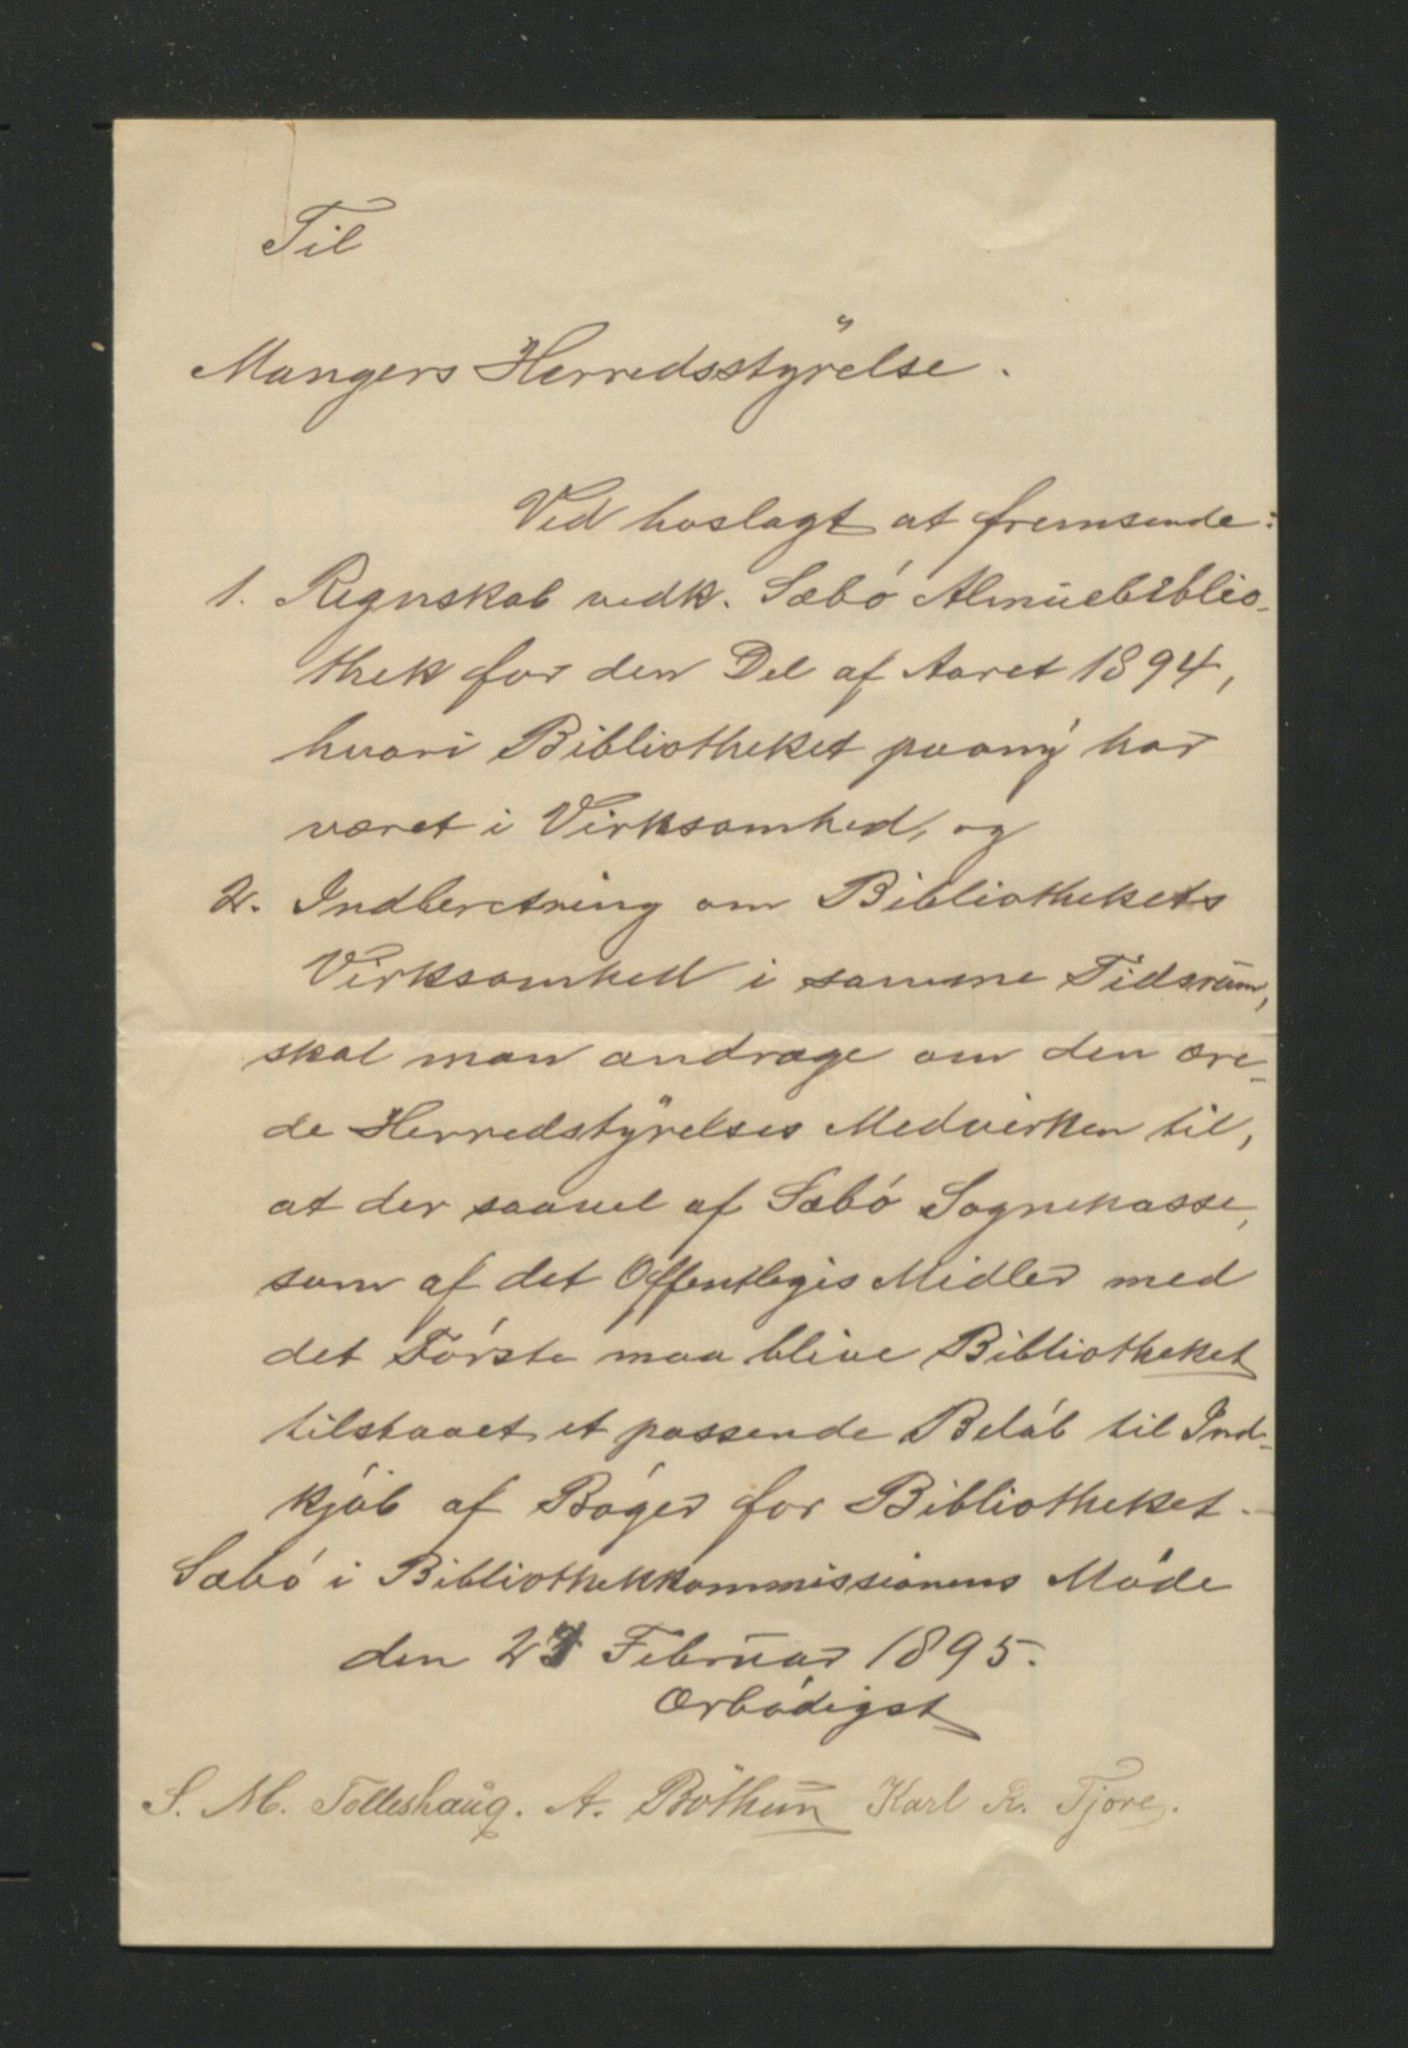 Til
Mangers Herredsstÿrelse.
Ved hoslagt at fremsende:
1. Regnskab vedk. Sæbó Almuebiblio-
thek for den Del af Aaret 1894,
hvori Bibliotheket paany har
været i Virksomhed, og
2. Indberetning om Bibliothekets
Virksomhed i samme Tidsrum,
skal man andrage om den ære-
de Herredstÿrelses Medvirken til,
at der saavel af Sæbó Sognekasse,
som af det Offentlegis Midler med
det Fórste maa blive Bibliotheket
tilstaaet et passende Belób til Ind-
kjób af Bóger for Bibliotheket.
Sæbó i Bibliothekkommissionens Móde
den Februar 1895.
Ærbódigst
S. M. Tolleshaug. A. Böthun Karl R. Tjore.